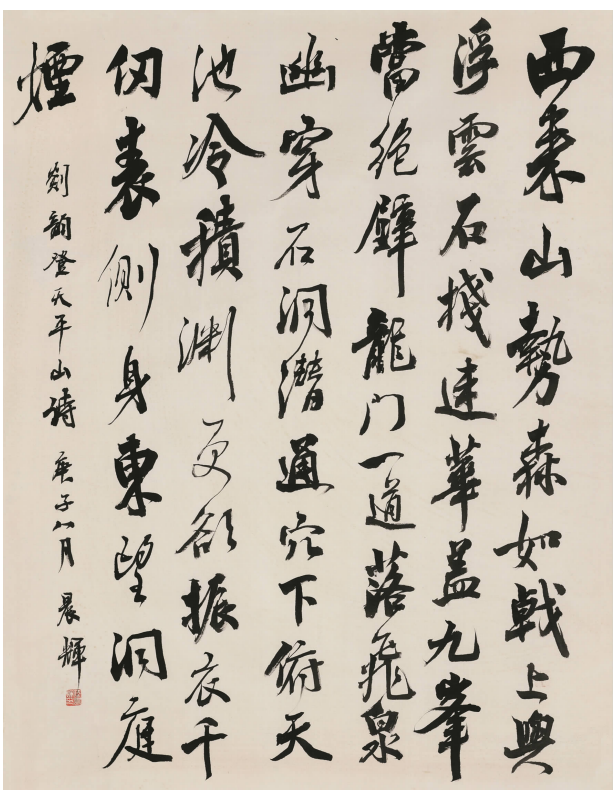 西来山势森如戟上與
浮雲石棧連華盖九峯
當絶壁龍门一道落飛泉
幽穿石洞潜通穴下俯天
池冷積渊更欲振衣千
仞表側身東望洞庭
煙
劉韵登天平山詩 庚子八月 晨輝